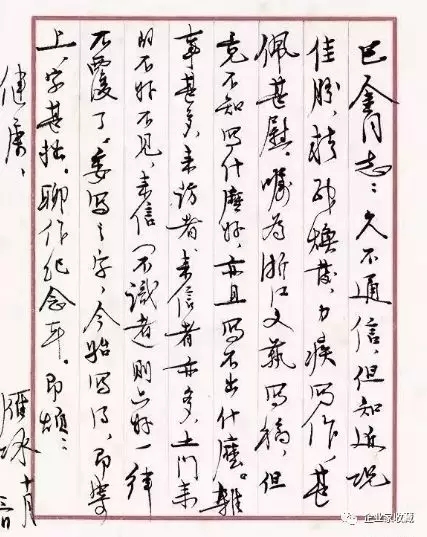 巴金同志：久不通信，但知近况
佳胜，精神焕发，力疾写作，甚
佩甚慰。嘱为浙江文艺写稿，但
竟不知写什麽好，亦且写不出什麽。雜
事甚多，来访者、来信者亦多，上门来
的不好不见，来信（不识者）则只好一律
不覆了。委写之字，今始写得，即寄
上。字甚拙。聊作纪念耳。即颂：
健康。
雁冰 十月
企业家收藏